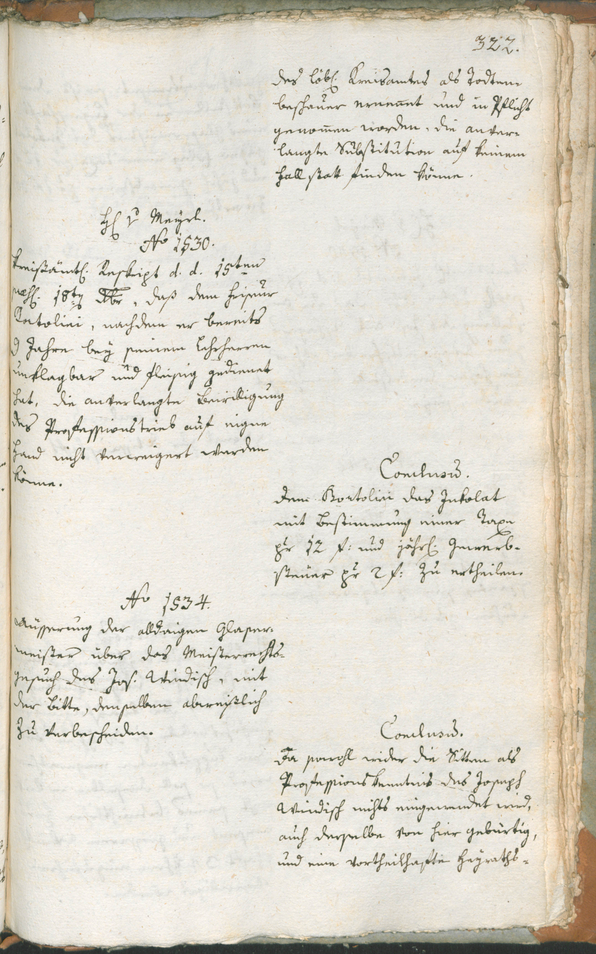 322.
des löbl. Kreisamtes als Todten-
beschauer ernennt und in Pflicht
genommen worden, die anver-
langte Substitution auf keinem
Fall statt finden könne.
H. v. Mayrl.
No 1530.
Kreisämtl. Reskript d. d. 15ten
18ten Xbr, daß dem Friseur
Bortolini, nachdem er bereits
9 Jahre bey seinem Lehrherren
unklagbar und fleißig gedienet
hat, die anverlangte Bewilligung
des Professionstrieb auf eigne
Hand nicht verweigert werden
könne.
Conclusum.
Dem Bortolini das Inkolat
mit Bestimmung einer Taxe
pr 12 f: und jährl. Gewerb-
steuer pr 2 f: zu ertheilen.
No 1534.
Äusserung der alldaigen Glaser-
meister über das Meisterrechts-
gesuch des Jos. Windisch, mit
der Bitte, denselben abweislich
zu verbescheiden.
Conclusum.
Da sowohl wider die Sitten als
Professionskenntnis des Joseph
Windisch nichts eingewendet wird,
auch derselbe von hier gebürtig,
und eine vortheilhafte Heyraths-